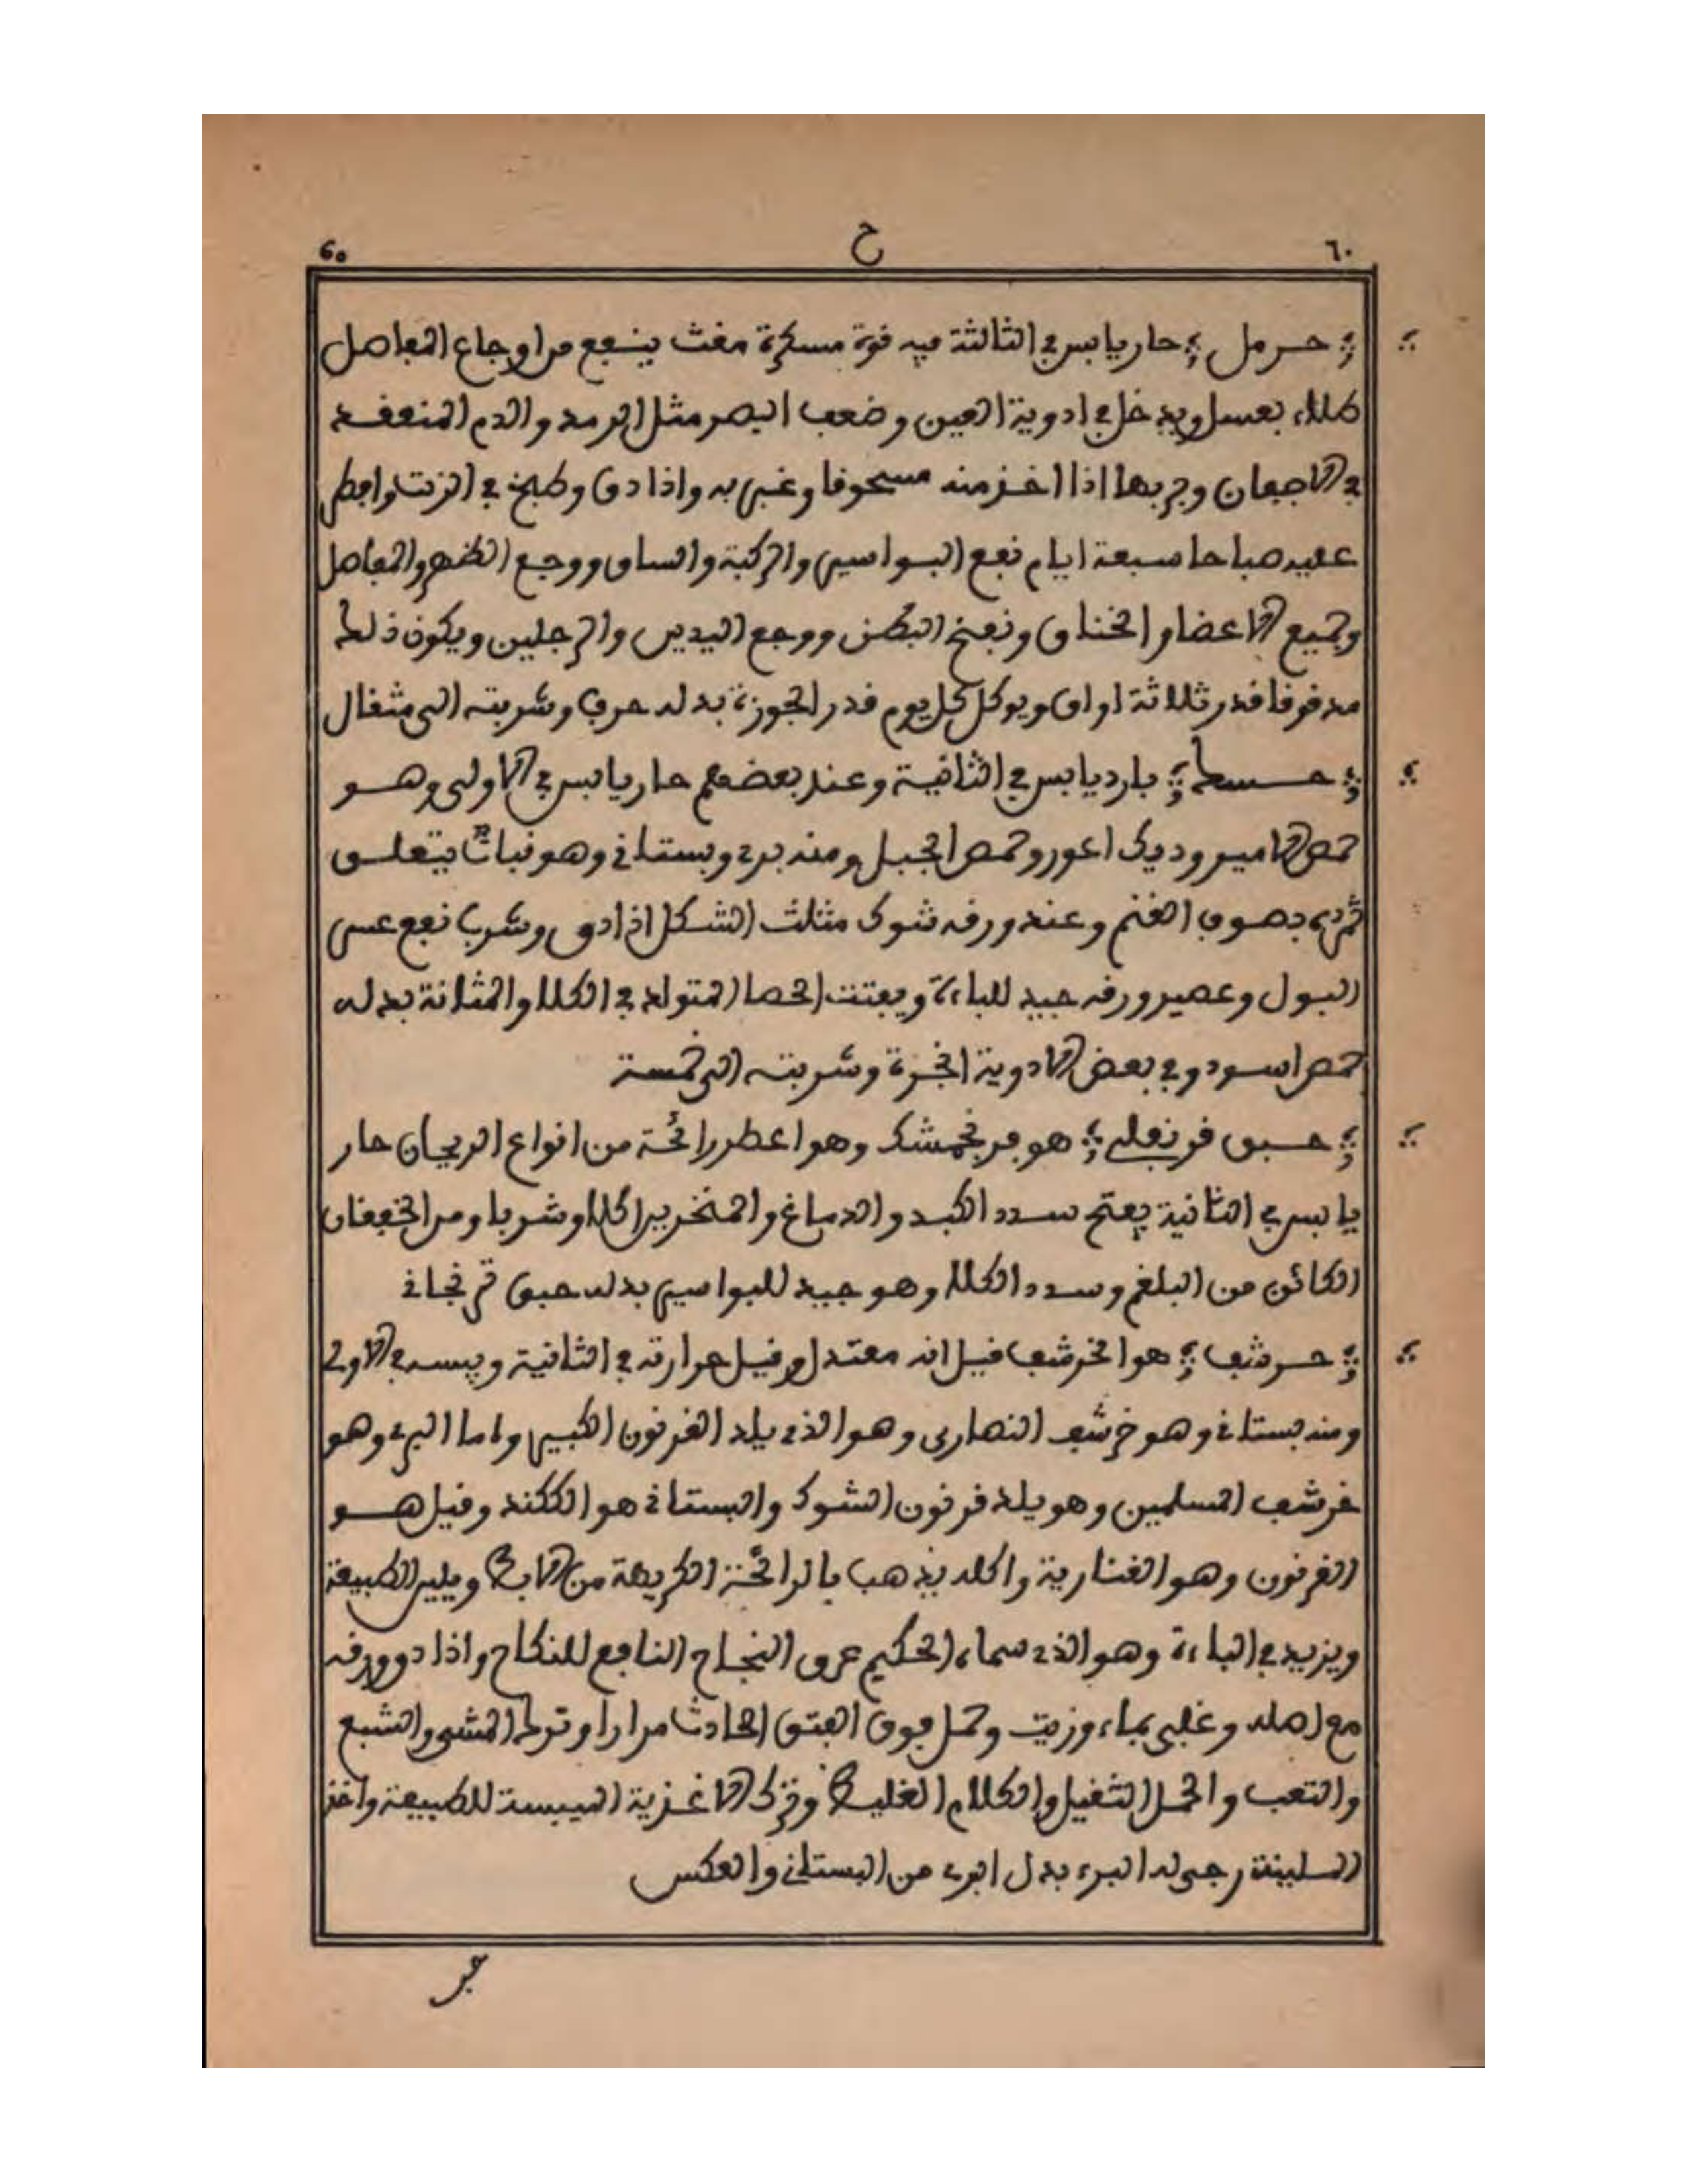 ٦٠ ح 60
حرمل حار يابس في الثالثة فيه قوة مسكرة مغث ينفع من اوجاع المفاصل
طلاء بعسل ويدخل في ادوية العين وضعف البصر مثل الرمد والدم المنعقد
في الاجفان وجربها اذا اخذ منه مسحوقا وغبر به واذا دق وطبخ في الزيت وافطر
عليه صباحا سبعة ايام نفع البواسير والركبة والساق ووجع الظهر والمفاصل
وجميع الاعضاء والخناق ونفخ البطن ووجع اليدين والرجلين ويكون ذلك
مدقوقا قدر ثلاثة اواق ويوكل كل يوم قدر الجوزة بدله حرف وشربته الى مثقال
حسك بارد يابس في الثانية وعند بعضهم حار يابس في الاولى وهو
حمص الامير وديك اعور وحمص الجبل ومنه بري وبستاني وهو نبات يتعلق
ثمره بصوف الغنم وعند ورقه شوك مثلث الشكل اذا دق وشرب نفع عسر
البول وعصير ورقه جيد للباءة ويفتت الحصا المتولد في الكلا والمثانة بدله
حمص اسود وفي بعض الادوية وشربته الى خمسة
حبق قرنفلي هو فرنجمشك وهو اعطر رائحة من انواع الريحان حار
يابس في الثانية يفتح سدد الكبد والدماغ والمنخرين اكلا وشربا ومن الخفقان
الكائن من البلغم وسدد الكلا وهو جيد للبواسير بدله حبق ترنجاني
حرشف هو الخرشف قيل انه معتدل وقيل حرارته في الثانية ويبسه في الاولى
ومنه بستاني وهو خرشف النصارى وهو الذي يلد القرنون الكبير واما البري وهو
خرشف المسلمين وهو يلد قرنون الشوك والبستاني هو الككند وقيل هو
القرنون وهو القنارية واكله يذهب بالرائحة الكريهة من الابط ويلين الطبيعة
ويزيد في الباءة وهو الذي سماه الحكيم عرق النجاح النافع للنكاح واذا دق ورقه
مع اصله وغلى بماء وزيت وحمل فوق الفتق الحادث مرارا وترك المشي والشبع
والتعب والحمل الثقيل والكلام الغليظ وترك الاغذية الميبسة للطبيعة واخذ
الملينة رجي له البرء بدل البري من البستاني والعكس